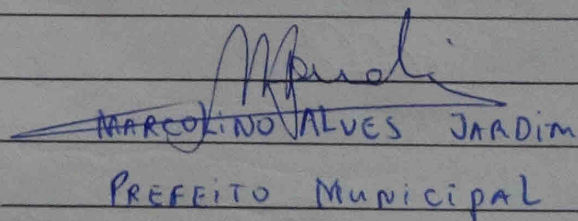 MARCOLINO ALVES JARDIM
PREFEITO MUNICIPAL